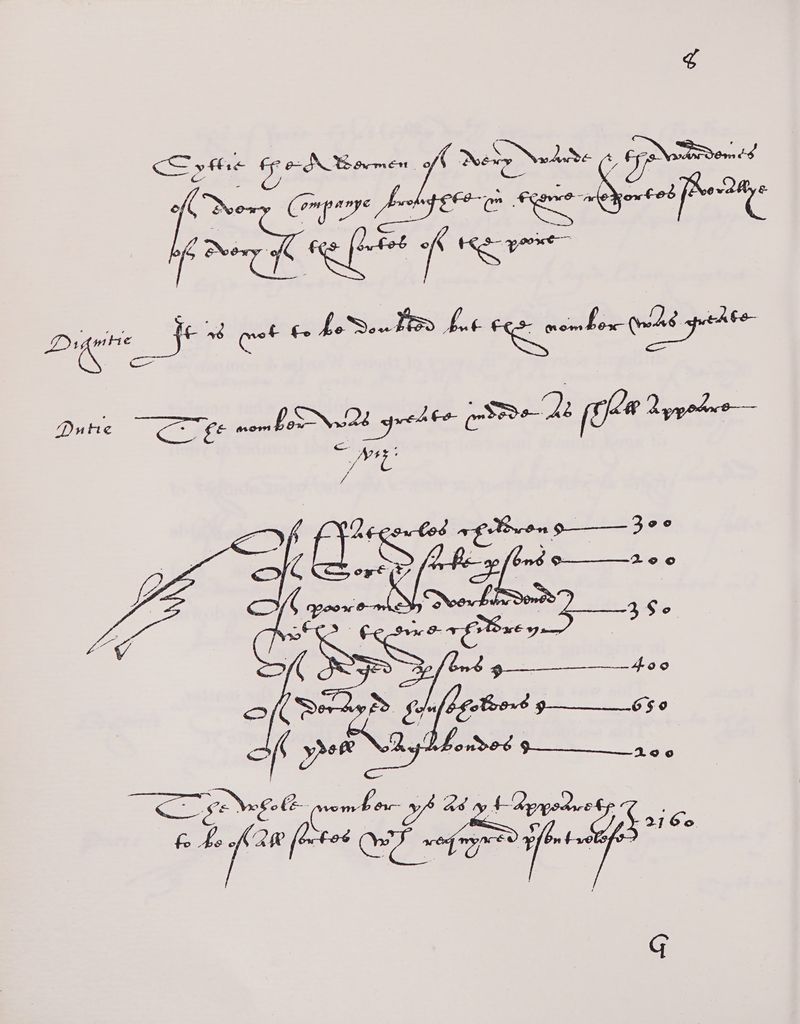 8
Cyttie the Aldermen of every warde & the wardeines
of every Companye broughte in theire reportes severallye
of every of the sortes of the poore
Dignitie It is not to be doubted but the nomber was greate
Dutie The nomber was greate indede as shall appeare
viz:
Of ffatherles children 300
Of Sore & sicke psons 200
Of poore men overburdened 350
wth theire children
Of Aged psons 400
Of decayed householders 650
Of ydell vagabondes 200
The whole nomber ys as yt appeareth 2160
to be of all sortes wch requyred psent relefe
G